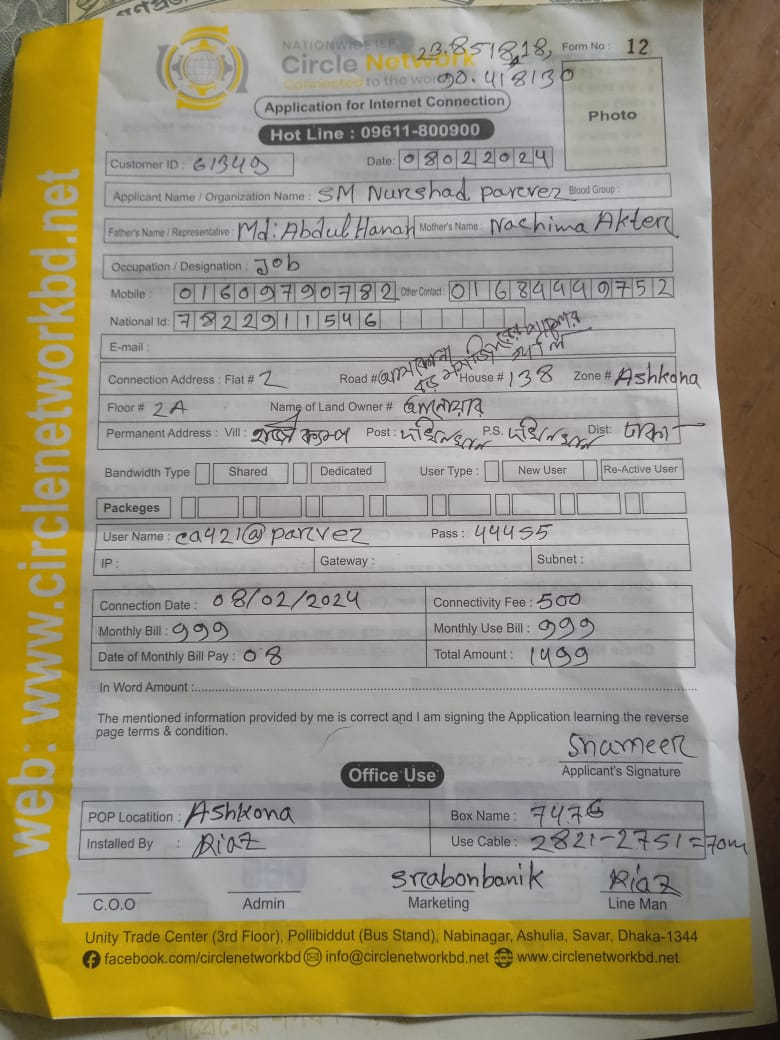 NATIONWIDE ISP
23.851818,
Form No : 12
Circle Network
Connected to the world
90.418130
Application for Internet Connection
Photo
Hot Line : 09611-800900
Customer ID : 61349
Date: 08022024
Applicant Name / Organization Name : SM Nurshad parvez Blood Group :
Father's Name / Representative : Md: Abdul Hanan Mother's Name : Nachima Akter
Occupation / Designation : Job
Mobile : 01609790782 Other Contact : 01684449752
National Id: 7822911546
E-mail :
Connection Address : Flat # 2 Road # House # 138 Zone # Ashkona
Floor # 2A Name of Land Owner #
Permanent Address : Vill : Post : P.S. Dist: ঢাকা
Bandwidth Type Shared Dedicated User Type : New User Re-Active User
Packeges
User Name : ca421@parvez Pass : 44455
IP : Gateway : Subnet :
Connection Date : 08/02/2024 Connectivity Fee : 500
Monthly Bill : 999 Monthly Use Bill : 999
Date of Monthly Bill Pay : 08 Total Amount : 1499
In Word Amount :
The mentioned information provided by me is correct and I am signing the Application learning the reverse
page terms & condition.
Shameer
Applicant's Signature
Office Use
POP Locatition : Ashkona Box Name : 7476
Installed By : Riaz Use Cable : 2821-2751=70m
Srabonbanik Riaz
C.O.O Admin Marketing Line Man
Unity Trade Center (3rd Floor), Pollibiddut (Bus Stand), Nabinagar, Ashulia, Savar, Dhaka-1344
facebook.com/circlenetworkbd info@circlenetworkbd.net www.circlenetworkbd.net
web: www.circlenetworkbd.net